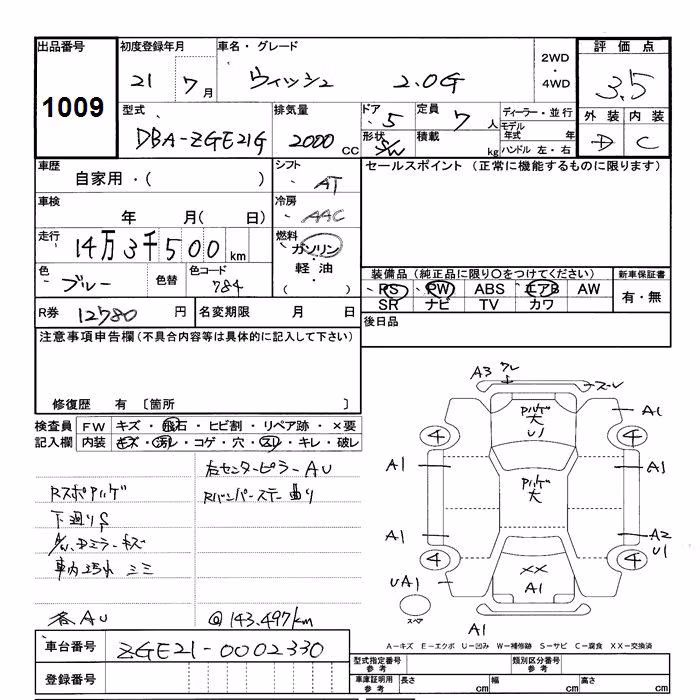 出品番号
1009
初度登録年月
21年7月
車名・グレード
ウィッシュ 2.0G
2WD
・
4WD
評価点
3.5
外装 内装
D C
型式
DBA-ZGE21G
排気量
2000 CC
ドア
5
形状
S/W
定員
7 人
積載
kg
ディーラー・並行
モデル年式 年
ハンドル 左・右
車歴
自家用・( )
シフト
AT
セールスポイント (正常に機能するものに限ります)
車検
年 月( 日)
冷房
AAC
走行
14万3千500km
燃料
ガソリン
・
軽油
( )
色
ブルー
色替
色コード
784
装備品(純正品に限り〇をつけてください)
PS PW ABS エアB AW
SR ナビ TV カワ
新車保証書
有・無
R券 12780 円
名変期限 月 日
後日品
注意事項申告欄(不具合内容等は具体的に記入して下さい)
修復歴 有 〔箇所 〕
検査員記入欄
FW キズ・飛石・ヒビ割・リペア跡・×要
内装 キズ・汚れ・コゲ・穴・スレ・キレ・破レ
右センターピラーAU
Rスポアハゲ
Rバンパーステー曲り
下廻りS
ミラーキズ
車内汚れ
各AU
@143,497km
車台番号 ZGE21-0002330
登録番号
A3 ワレ
スーレ
Aハゲ
大
U1
A1
4
4
A1
Aハゲ
大
A1
A1
A2
U1
4
4
UA1
XX
A1
A1
スペア
A-キズ E-エクボ U-凹み W-補修跡 S-サビ C-腐食 XX-交換済
型式指定番号
参考
類別区分番号
参考
車庫証明用
参考
長さ cm
幅 cm
高さ cm